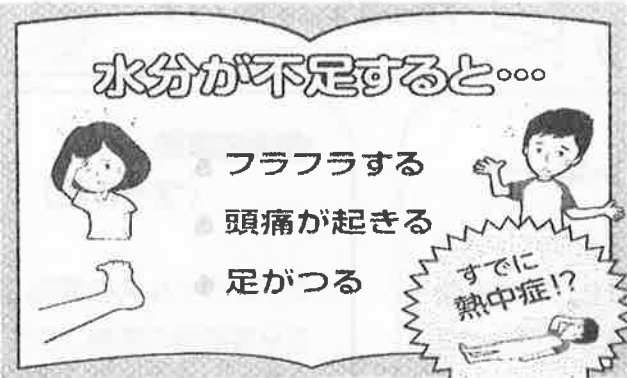 水分が不足すると…
フラフラする
頭痛が起きる
足がつる
すでに
熱中症!?